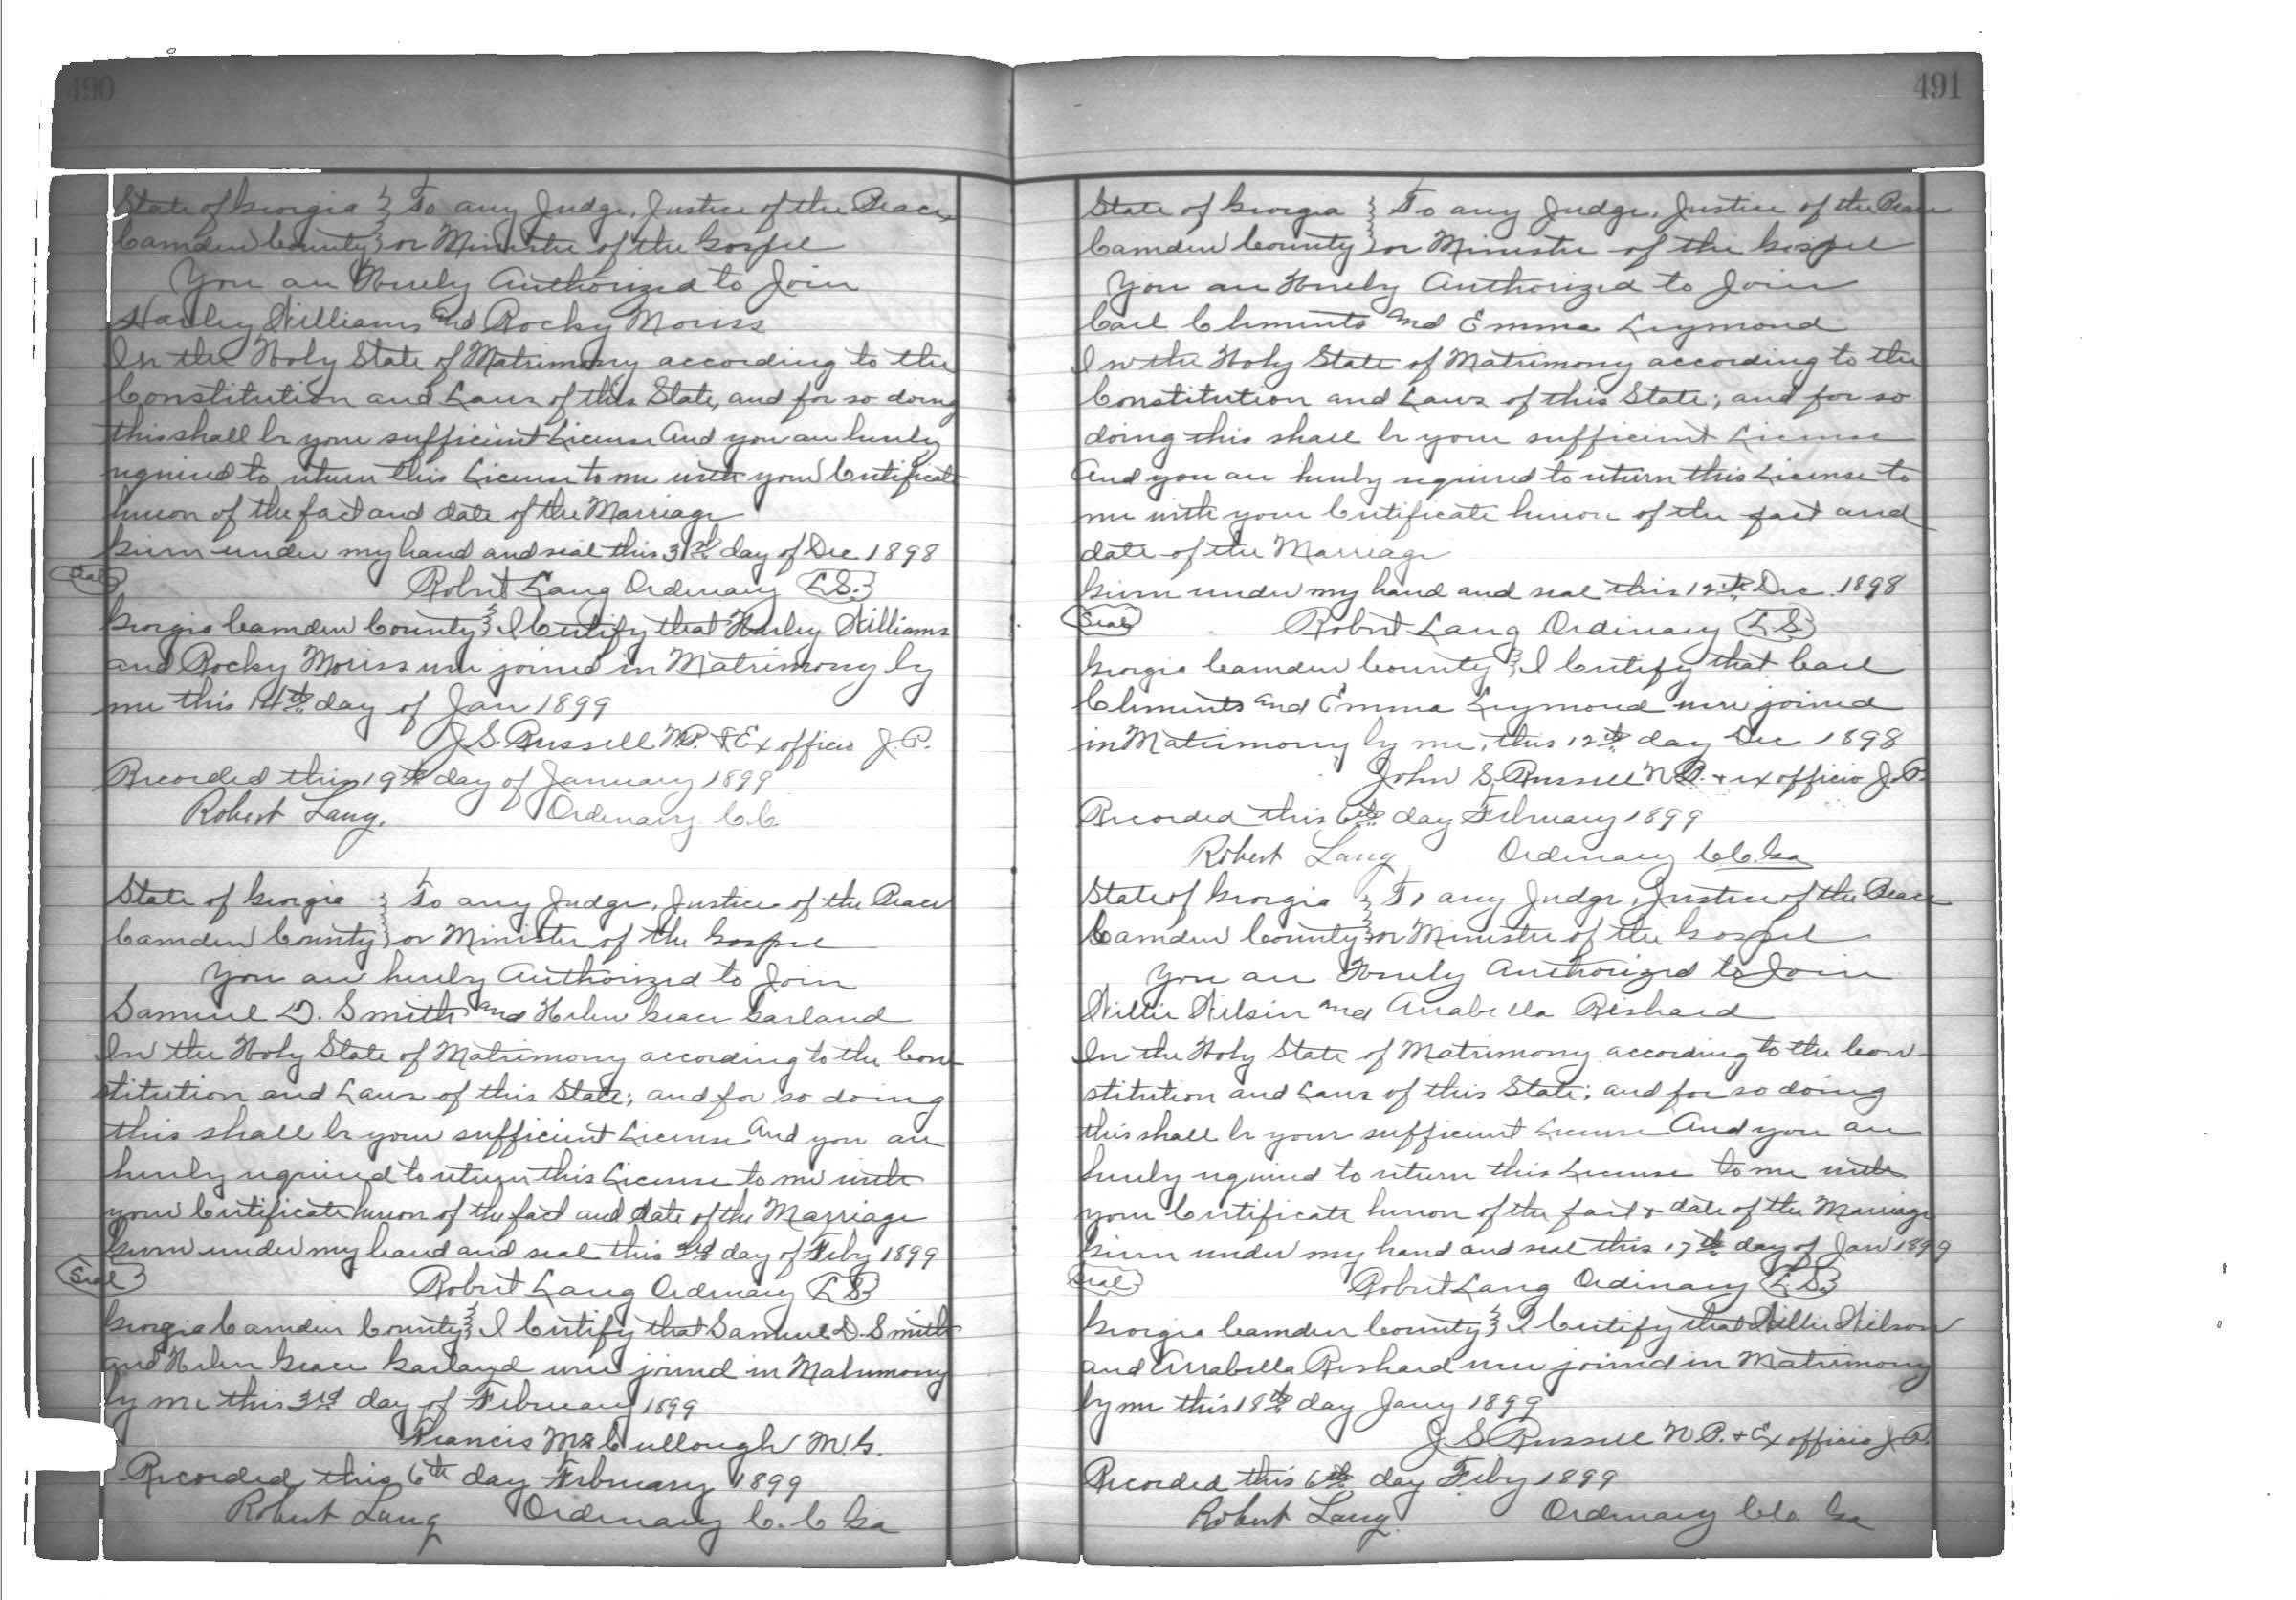 490
State of Georgia } To any Judge, Justice of the Peace
Camden County } or Minister of the Gospel
You are Hereby Authorized to Join
Harley Williams and Rocky Moriss
In the Holy State of Matrimony according to the
Constitution and Laws of this State, and for so doing
this shall be your sufficient License And you are hereby
required to return this License to me with your Certificate
hereon of the fact and date of the Marriage
Given under my hand and seal this 31st day of Dec 1898
Seal
Robert Lang Ordinary L.S.
Georgia Camden County } I Certify that Harley Williams
and Rocky Moriss were joined in Matrimony by
me this 14th day of Jan 1899
J. S. Russell N.P. & Ex officio J. P.
Recorded this 19th day of January 1899
Robert Lang. Ordinary C.C.
State of Georgia } To any Judge, Justice of the Peace
Camden County } or Minister of the Gospel
You are hereby Authorized to Join
Samuel D. Smith and Helen Grace Garland
In the Holy State of Matrimony according to the Con-
stitution and Laws of this State; and for so doing
this shall be your sufficient License And you are
hereby required to return this License to me with
your Certificate hereon of the fact and date of the Marriage
Given under my hand and seal this 3rd day of Feby 1899
Seal
Robert Lang Ordinary L S
Georgia Camden County } I Certify that Samuel D. Smith
and Helen Grace Garland were joined in Matrimony
by me this 3rd day of February 1899
Francis McCullough M.G.
Recorded this 6th day February 1899
Robert Lang Ordinary C. C Ga
491
State of Georgia } To any Judge, Justice of the Peace
Camden County } or Minister of the Gospel
You are Hereby Authorized to Join
Carl Clements and Emma Lrymond
In the Holy State of Matrimony according to the
Constitution and Laws of this State; and for so
doing this shall be your sufficient License
And you are hereby required to return this License to
me with your Certificate hereon of the fact and
date of the Marriage
Given under my hand and seal this 12th Dec. 1898
Seal
Robert Lang Ordinary L S
Georgia Camden County } I Certify that Carl
Clements and Emma Lrymond were joined
in Matrimony by me, this 12th day Dec 1898
John S. Russell N.P. & ex officio J.P.
Recorded this 6th day February 1899
Robert Lang Ordinary C.C. Ga
State of Georgia } To any Judge, Justice of the Peace
Camden County } or Minister of the Gospel
You are Hereby Authorized to Join
Willie Wilsin and Arrabella Rishard
In the Holy State of Matrimony according to the Con-
stitution and Laws of this State; and for so doing
this shall be your sufficient License And you are
hereby required to return this License to me with
your Certificate hereon of the fact & date of the Marriage
Given under my hand and seal this 17th day of Jan 1899
Seal
Robert Lang Ordinary L.S.
Georgia Camden County } I Certify that Willie Wilson
and Arrabella Rishard were joined in Matrimony
by me this 18th day Jany 1899
J. S. Russell N.P. & Ex officio J.P.
Recorded this 6th day Feby 1899
Robert Lang. Ordinary C.C. Ga